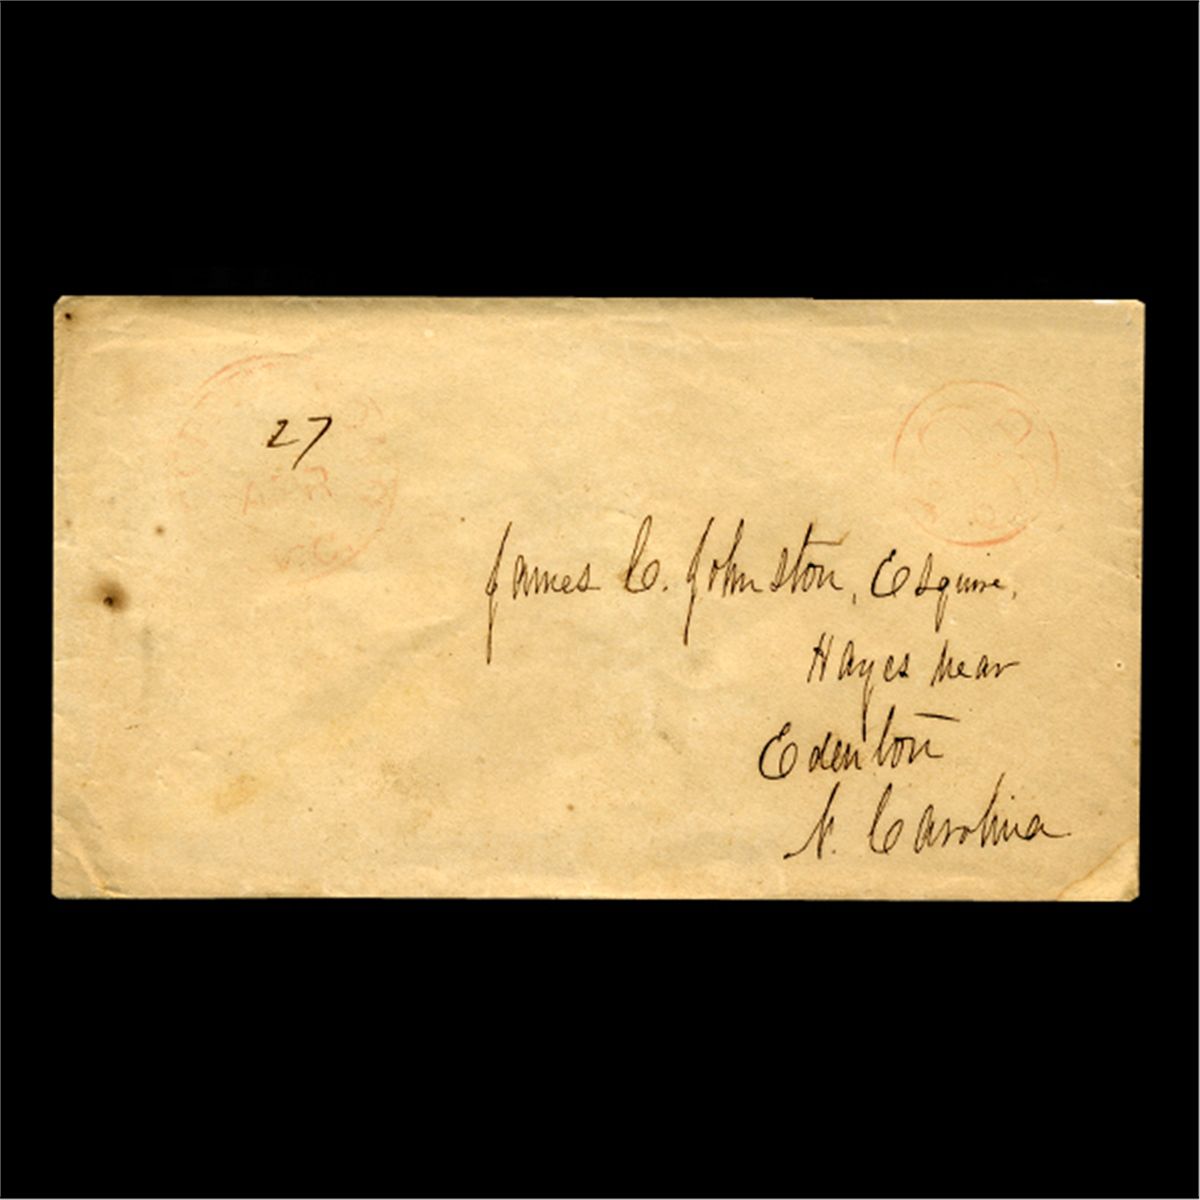 27
James C. Johnston, Esquire,
Hayes near
Edenton
N. Carolina